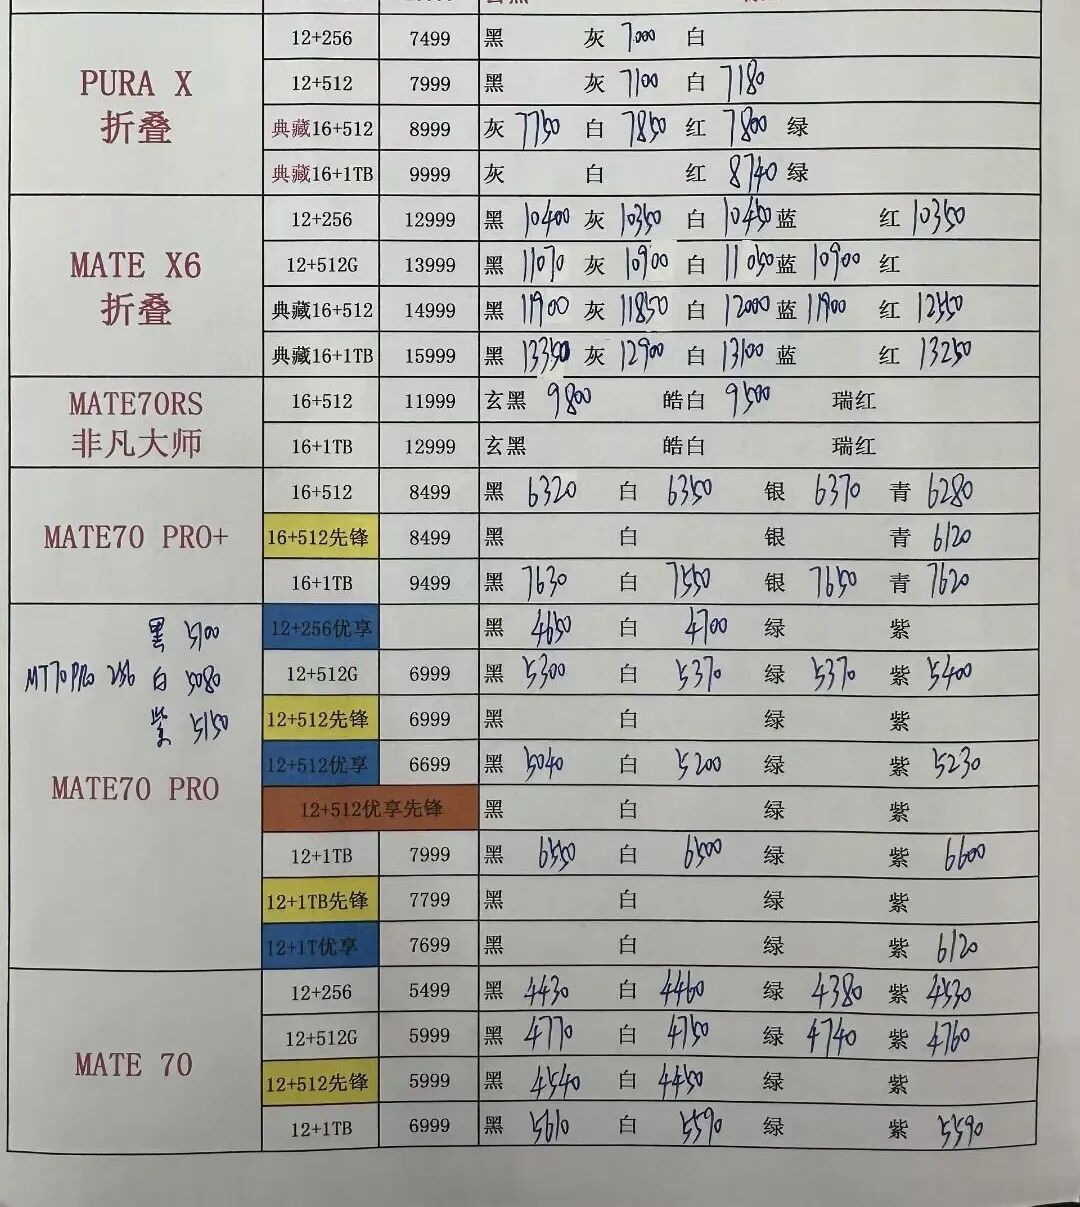 12+256 7499 黑 灰 7000 白
PURA X
折叠
12+512 7999 黑 灰 7100 白 7180
典藏16+512 8999 灰 7750 白 7850 红 7800 绿
典藏16+1TB 9999 灰 白 红 8740 绿
MATE X6
折叠
12+256 12999 黑 10400 灰 10350 白 10450 蓝 红 10350
12+512G 13999 黑 11070 灰 10900 白 11050 蓝 10900 红
典藏16+512 14999 黑 11900 灰 11850 白 12000 蓝 11900 红 12550
典藏16+1TB 15999 黑 13350 灰 12900 白 13100 蓝 红 13250
MATE70RS
非凡大师
16+512 11999 玄黑 9800 皓白 9500 瑞红
16+1TB 12999 玄黑 皓白 瑞红
MATE70 PRO+
16+512 8499 黑 6320 白 6350 银 6370 青 6280
16+512先锋 8499 黑 白 银 青 6120
16+1TB 9499 黑 7630 白 7550 银 7650 青 7620
黑 5100
MT70PRO 256 白 5080
紫 5150
MATE70 PRO
12+256优享 黑 4650 白 4700 绿 紫
12+512G 6999 黑 5300 白 5370 绿 5370 紫 5400
12+512先锋 6999 黑 白 绿 紫
12+512优享 6699 黑 5040 白 5200 绿 紫 5230
12+512优享先锋 黑 白 绿 紫
12+1TB 7999 黑 6550 白 6500 绿 紫 6600
12+1TB先锋 7799 黑 白 绿 紫
12+1T优享 7699 黑 白 绿 紫 6120
MATE 70
12+256 5499 黑 4430 白 4460 绿 4380 紫 4530
12+512G 5999 黑 4770 白 4750 绿 4740 紫 4760
12+512先锋 5999 黑 4540 白 4450 绿 紫
12+1TB 6999 黑 5610 白 5590 绿 紫 5590